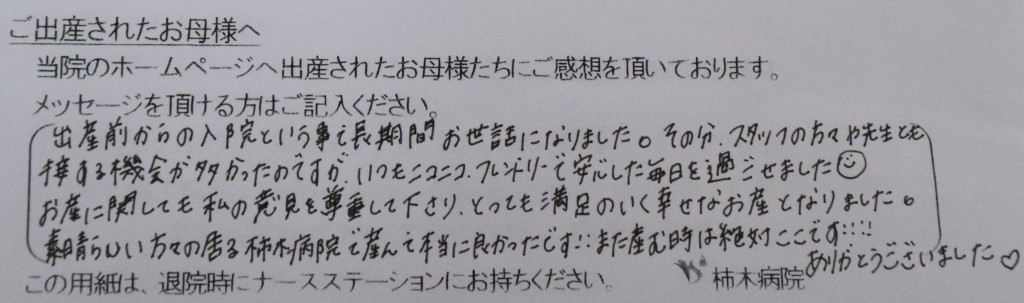 ご出産されたお母様へ
当院のホームページへ出産されたお母様たちにご感想を頂いております。
メッセージを頂ける方はご記入ください。
出産前からの入院という事で長期間お世話になりました。その分、スタッフの方々や先生とも
接する機会が多かったのですが、いつもニコニコ、フレンドリーで安心した毎日を過ごせました☺
お産に関しても私の意見を尊重して下さり、とっても満足のいく幸せなお産となりました。
素晴らしい方々の居る柿木病院で産んで本当に良かったです!!また産む時は絶対ここです!!!
ありがとうございました♡
この用紙は、退院時にナースステーションにお持ちください。
柿木病院